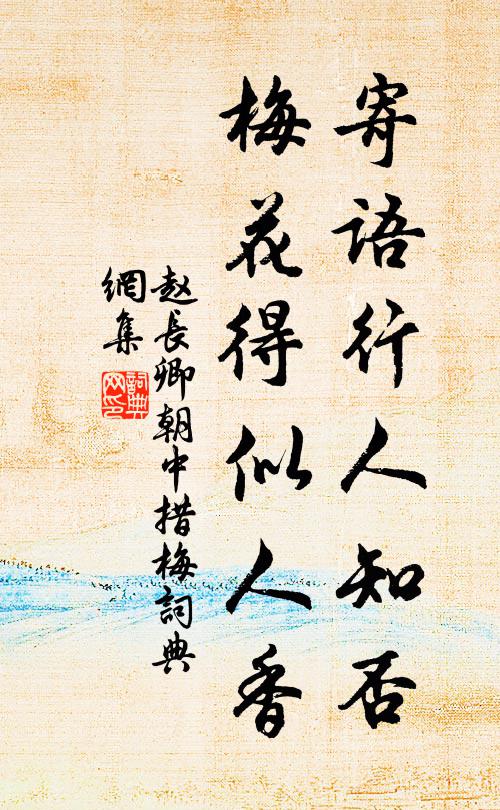 寄語行人知否
梅花得似人香
赵長卿朝中措梅詞典
網集
詞典
网印